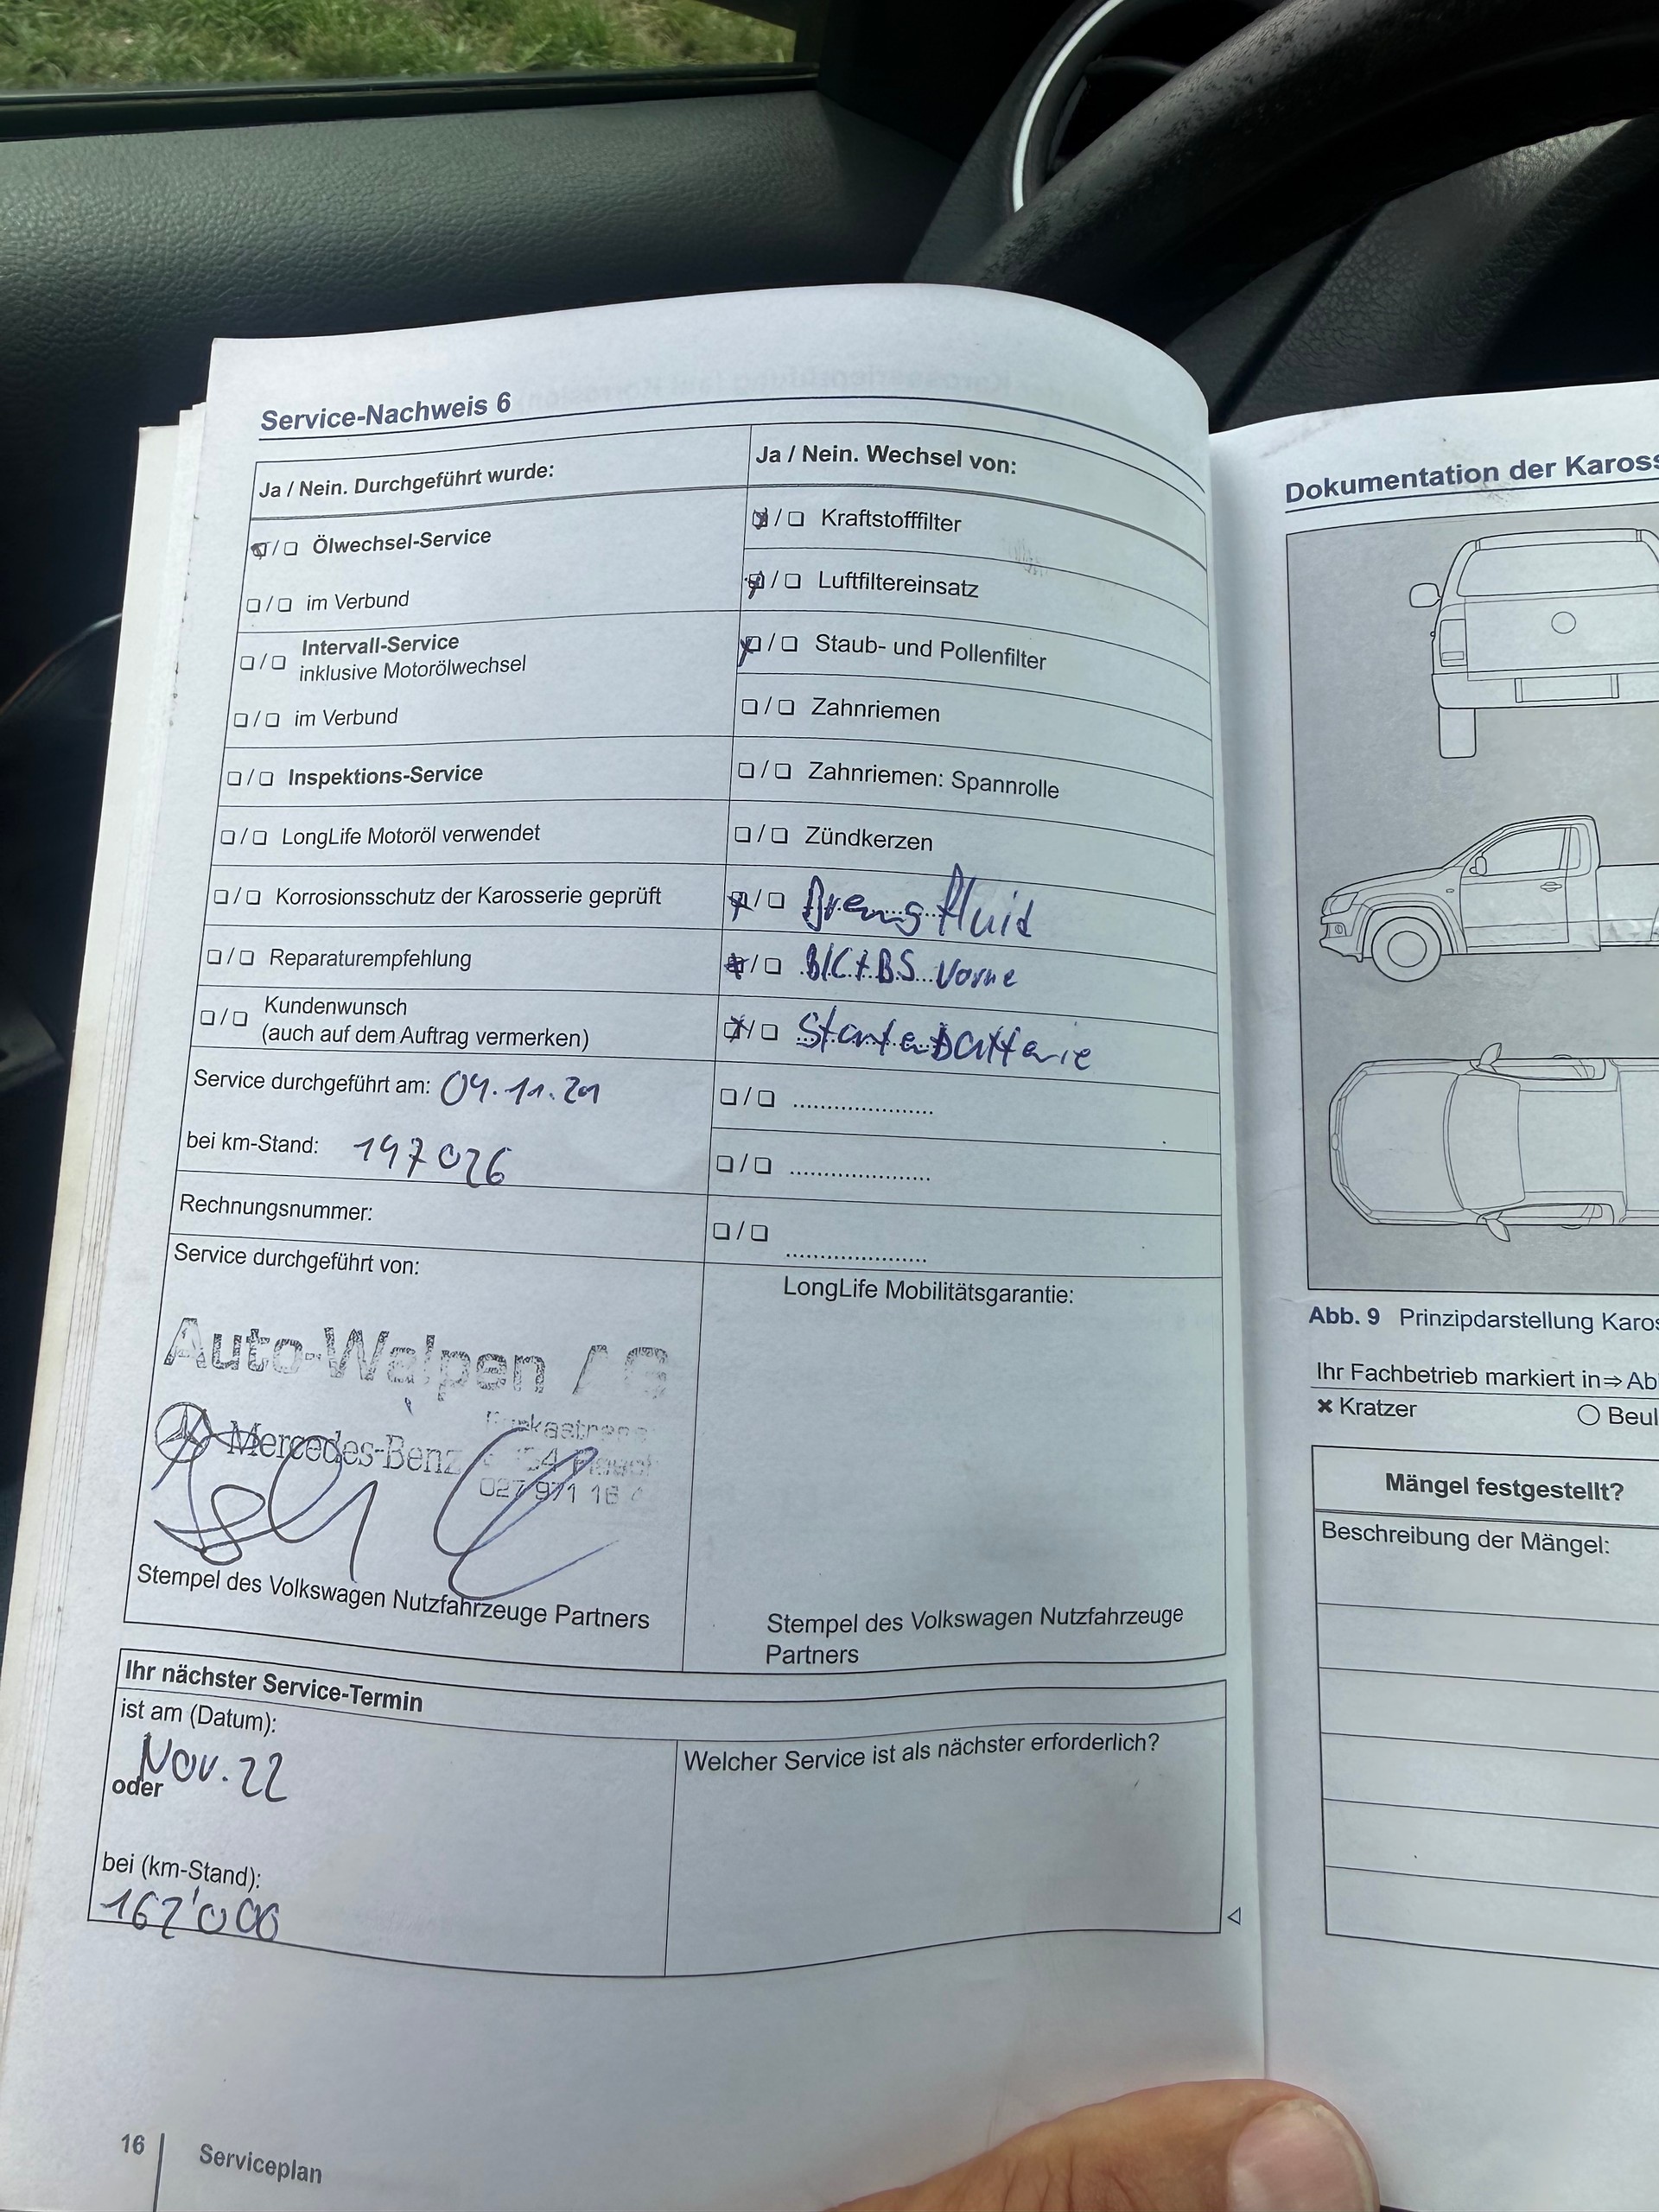 Service-Nachweis 6
Ja / Nein. Durchgeführt wurde:
Ölwechsel-Service
im Verbund
Intervall-Service
inklusive Motorölwechsel
im Verbund
Inspektions-Service
LongLife Motoröl verwendet
Korrosionsschutz der Karosserie geprüft
Reparaturempfehlung
Kundenwunsch
(auch auf dem Auftrag vermerken)
Service durchgeführt am: 04.11.21
bei km-Stand: 147026
Rechnungsnummer:
Service durchgeführt von:
Auto-Walpen AG
Mercedes-Benz
027 971 16
Stempel des Volkswagen Nutzfahrzeuge Partners
Ja / Nein. Wechsel von:
Kraftstofffilter
Luftfiltereinsatz
Staub- und Pollenfilter
Zahnriemen
Zahnriemen: Spannrolle
Zündkerzen
Bremsfluid
Vorne
LongLife Mobilitätsgarantie:
Stempel des Volkswagen Nutzfahrzeuge
Partners
Ihr nächster Service-Termin
ist am (Datum):
Nov. 22
oder
bei (km-Stand):
162'000
Welcher Service ist als nächster erforderlich?
16
Serviceplan
Dokumentation der
Abb. 9 Prinzipdarstellung
Ihr Fachbetrieb markiert in⇒
Kratzer
Mängel festgestellt?
Beschreibung der Mängel: